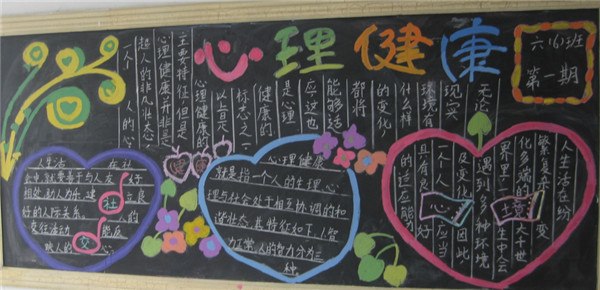 心理健康
六(6)班
第一期
无论
现实
环境有
什么样
的变化
都将
能够适
应 这也
是心理
健康的
标志之一
以上是人
心理健康的
主要特征但是
心理健康并非是
超人的非凡状态
一个人 人的心
人生活 在社
会中就要善于与人友好
相处助人为乐 建立良
好的人际关系。人的
交往活动 能反
映人的
社
交
心理健康
就是指一个人的生理心
理与社会处于相互协调的和
谐状态,其特征如下 人智
力正常,人的智力分为三
种
人生活在纷
繁复杂 变
化多端的 大千世
界里一 生中会
遇到多种环境
及变化 因此
一个人 应当
具有良 的适应能力
境
心